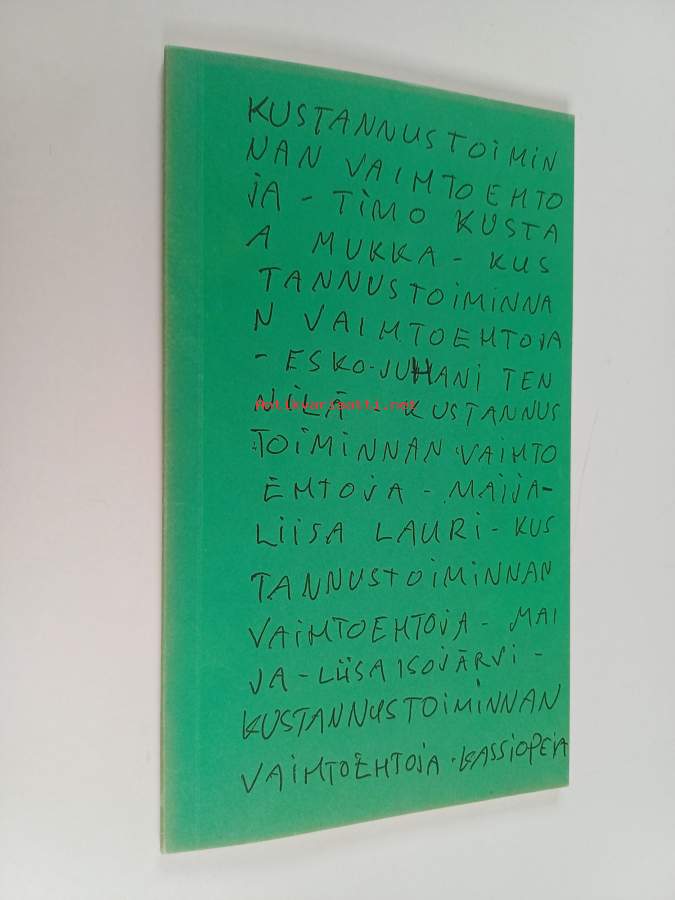 KUSTANNUSTOIMIN
NAN VAIHTOEHTO
JA - TIMO KUSTA
A MUKKA - KUS
TANNUSTOIMINNA
N VAIHTOEHTOJA
- ESKO-JUHANI TEN
NILÄ - KUSTANNUS
Antikvariaatti.net
TOIMINNAN VAIHTO
EHTOJA - MAIJA-
LIISA LAURI - KUS
TANNUSTOIMINNAN
VAIHTOEHTOJA - MAI
JA-LIISA ISOJÄRVI -
KUSTANNUSTOIMINNAN
VAIHTOEHTOJA · KASSIOPEIA